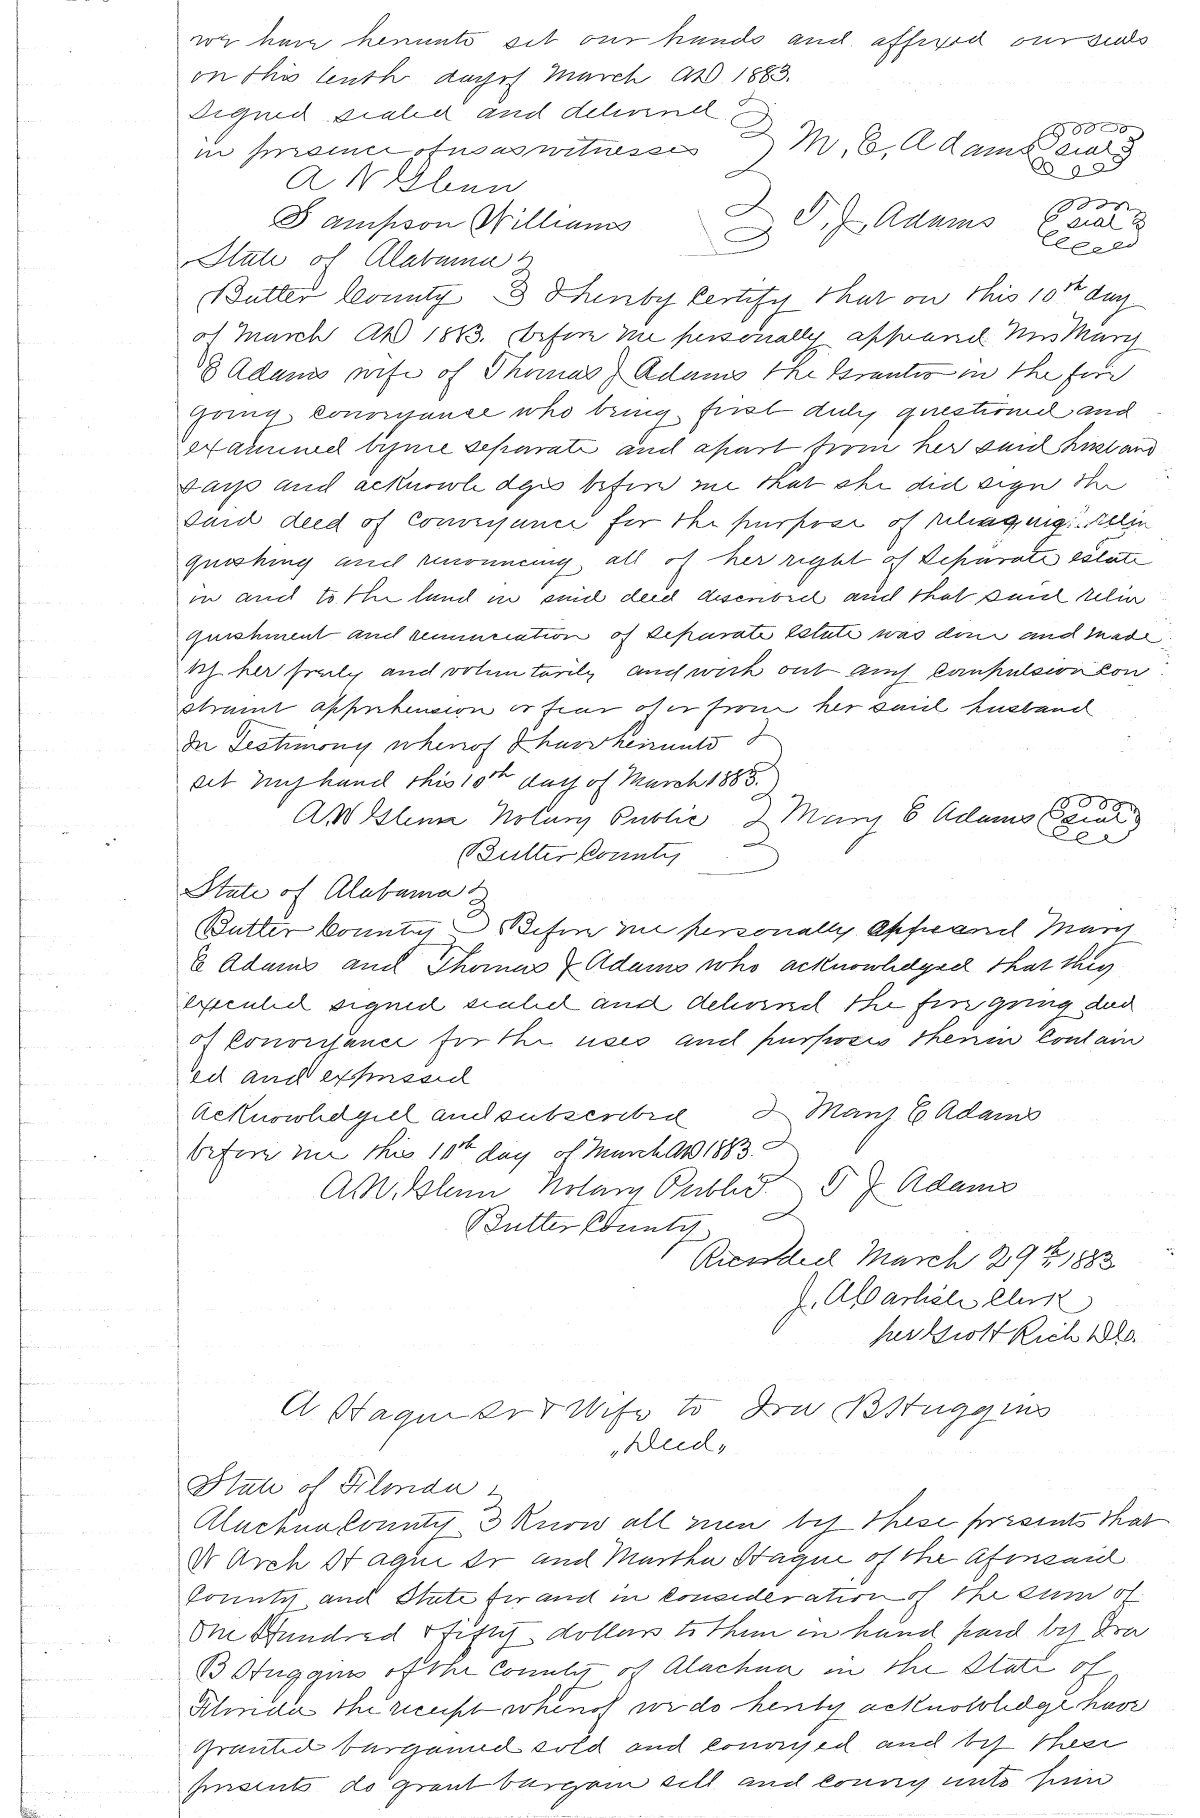 we have hereunto set our hands and affixed our seals
on this tenth day of March AD. 1883.
Signed sealed and delivered
in presence of us as witnesses M. E. Adams seal
A N Glenn
Sampson Williams T. J. Adams seal
State of Alabama
Butler County I hereby Certify that on this 10th day
of March AD 1883. before me personally appeared Mrs Mary
E Adams wife of Thomas J Adams the Grantor in the fore
going conveyance who being first duly questioned and
examined by me separate and apart from her said husband
says and acknowledges before me that she did sign the
said deed of conveyance for the purpose of relin
quishing and renouncing all of her right of Separate estate
in and to the land in said deed described and that said relin
quishment and renunciation of Separate Estate was done and made
by her freely and voluntarily and with out any Compulsion Con
straint apprehension or fear of or from her said husband
In Testimony whereof I have hereunto
set my hand this 10th day of March 1883.
A N Glenn Notary Public Mary E Adams seal
Butler County
State of Alabama
Butler County Before me personally appeared Mary
E Adams and Thomas J Adams who acknowledged that they
executed signed sealed and delivered the fore going deed
of Conveyance for the uses and purposes therein Contain
ed and expressed
Acknowledged and subscribed Mary E Adams
before me this 10th day of March AD 1883.
A. N. Glenn Notary Public T J Adams
Butler County
Recorded March 29th 1883
J. A Carlisle Clerk
per Scott Rich D.C.
A Hague Sr & Wife to Ira B Huggins
"Deed"
State of Florida
Alachua County Know all men by these presents that
W Arch Hague Sr and Martha Hague of the Aforesaid
County and State for and in consideration of the sum of
One Hundred & fifty dollars to them in hand paid by Ira
B Huggins of the County of Alachua in the State of
Florida the receipt whereof we do hereby acknowledge have
granted bargained sold and conveyed and by these
presents do grant bargain sell and convey unto him